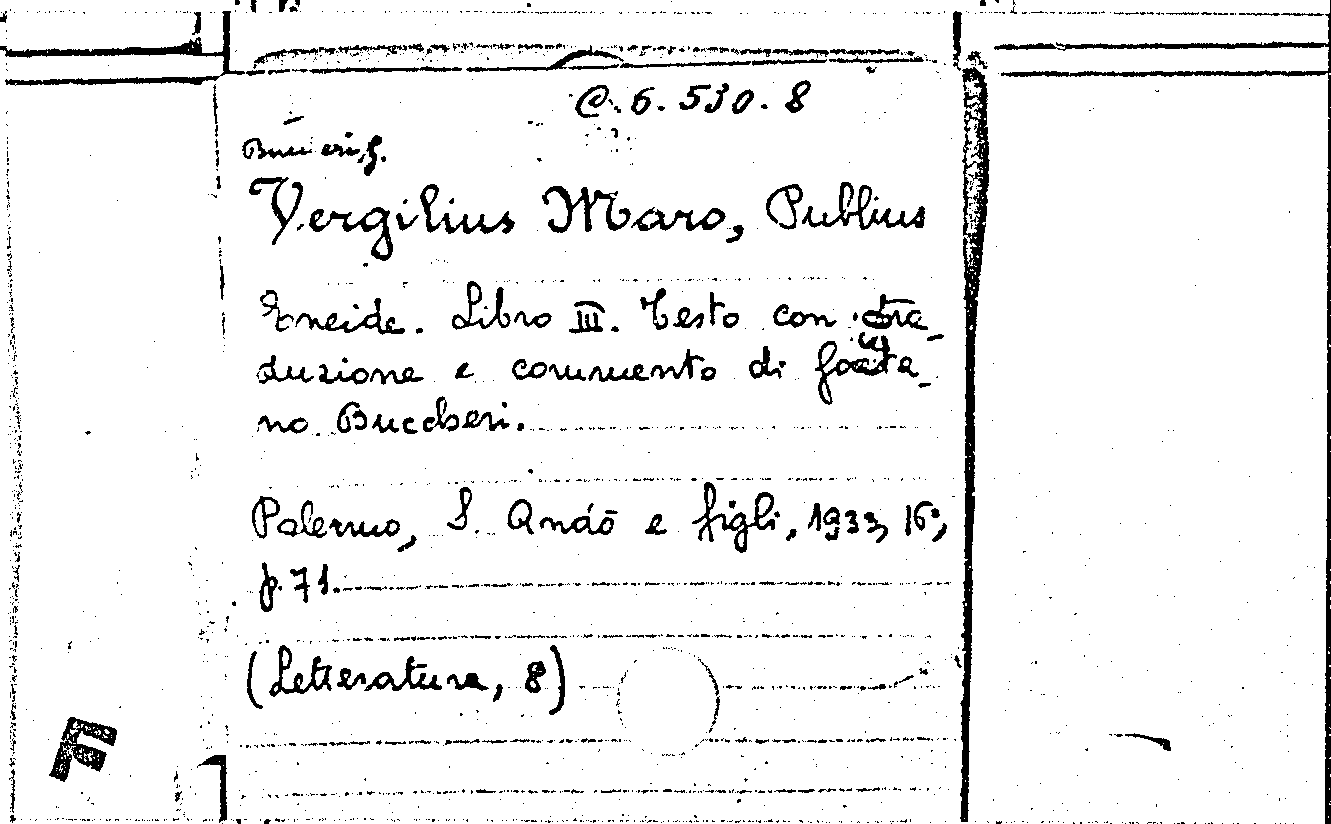 C. 6. 530. 8
Vergilius Maro, Publius
Eneide. Libro III. Testo con tra_
duzione e commento di Gaeta_
no Buccheri.
Palermo, S. Andò e figli, 1933, 16°,
p. 71.
(Letteratura, 8)
F